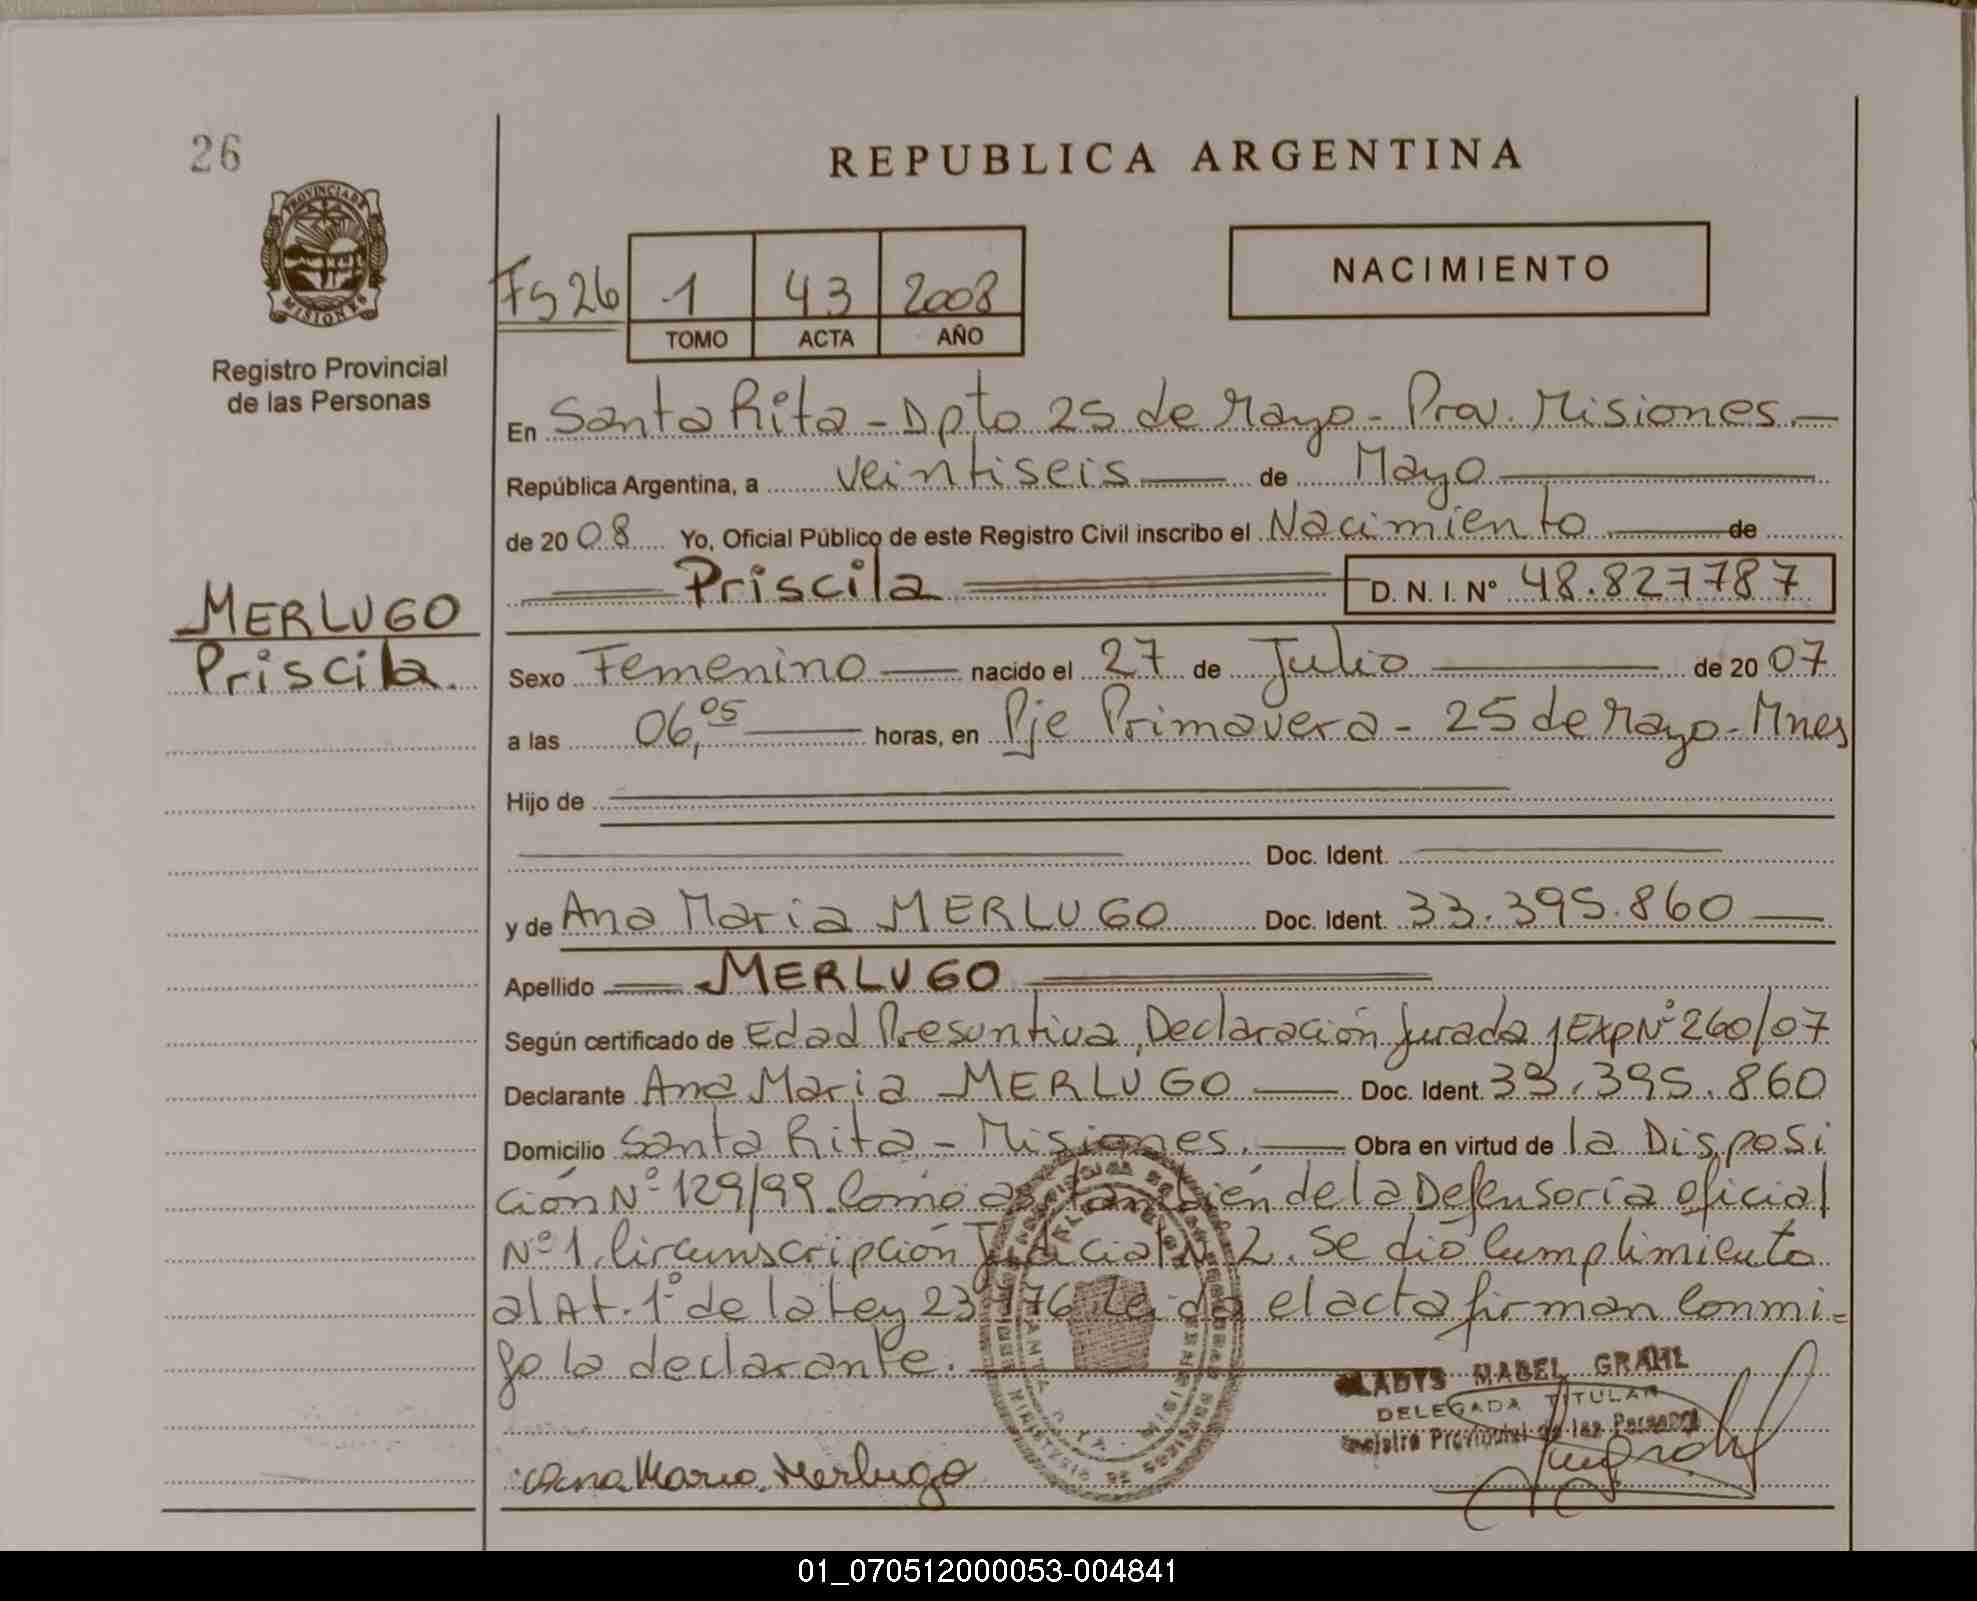 26
REPUBLICA ARGENTINA
PROVINCIA DE
MISIONES
Fs 26
1 43 2008
TOMO ACTA AÑO
NACIMIENTO
Registro Provincial
de las Personas
En Santa Rita - Dpto 25 de Mayo - Prov. Misiones.-
República Argentina, a veintiseis de Mayo
de 2008 Yo, Oficial Público de este Registro Civil inscribo el Nacimiento de
Priscila D. N. I. Nº 48.827787
MERLUGO
Priscila.
Sexo Femenino nacido el 27 de Julio de 2007
a las 06,05 horas, en Pje Primavera - 25 de Mayo - Mnes
Hijo de
Doc. Ident.
y de Ana Maria MERLUGO Doc. Ident. 33.395.860
Apellido MERLUGO
Según certificado de Edad Presuntiva, Declaración Jurada y Exp Nº 260/07
Declarante Ana Maria MERLUGO Doc. Ident. 33.395.860
Domicilio Santa Rita - Misiones. Obra en virtud de la Disposi
ción Nº 129/99. Como así también de la Defensoría oficial
Nº 1, Circunscripción Judicial Nº 2. Se dió Cumplimiento
al At. 1º de la Ley 23776 Leida el acta firman Conmi=
go la declarante.
GLADYS MABEL GRAHL
DELEGADA TITULAR
Registro Provincial de las Personas
Ana Maria Merlugo
01_070512000053-004841